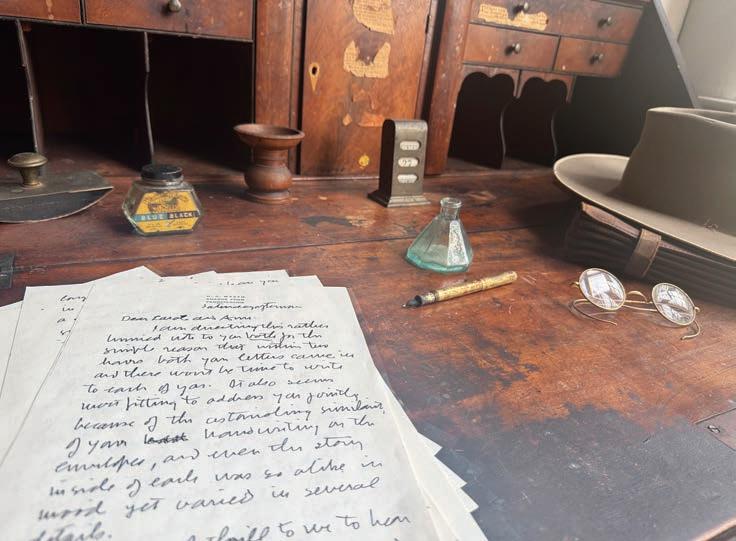 BLUE BLACK
Dear Carol and Ann:
I am directing this rather
hurried note to you both for the
simple reason that within two
hours both your letters came in
and there won't be time to write
to each of you. It also seems
most fitting to address you jointly
because of the astounding similarity
of your handwriting on the
envelopes, and even the story
inside of each was so alike in
mood yet varied in several
details.
thrill to me to hear